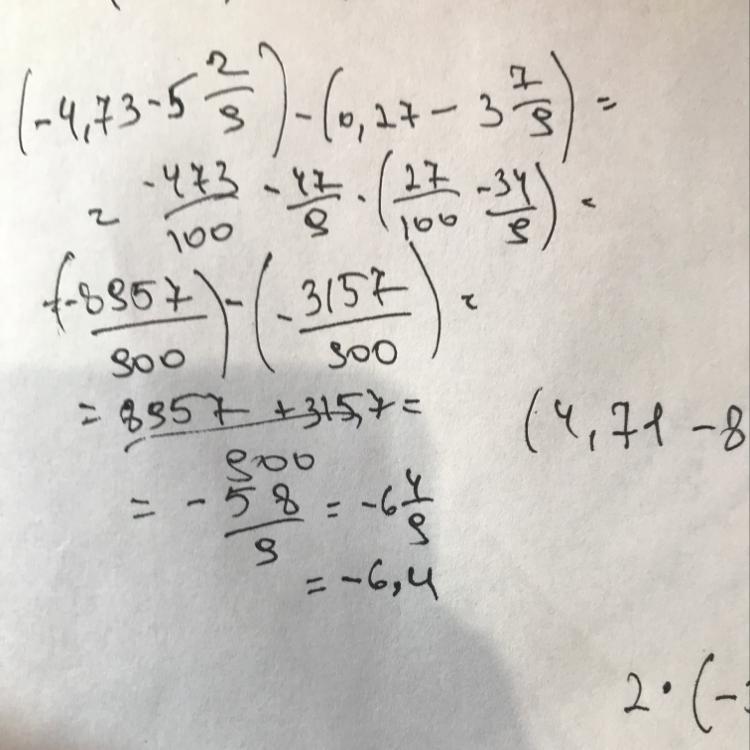 (-4,73-5 2/9) - (0,27 - 3 7/9) =
= -473/100 - 47/9 - (27/100 - 34/9) =
(-8957/900) - (-3157/900) =
= 8957 + 3157/900 =
= -58/9 = -6 4/9
= -6,4
(4,71 - 8
2 · (-